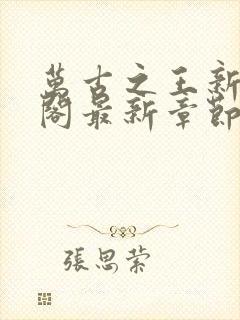 萬古之王新
閣最新章節
張思萦